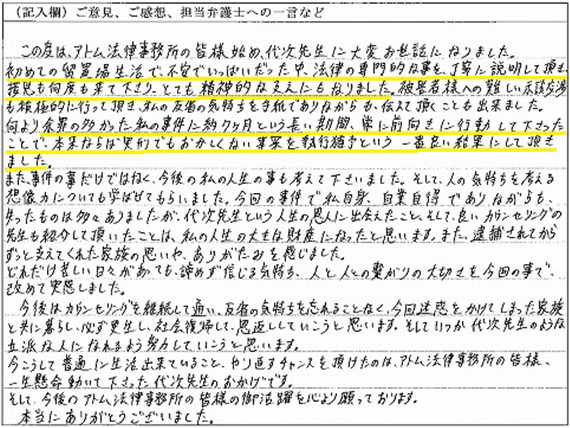 (記入欄)ご意見、ご感想、担当弁護士への一言など
この度は、アトム法律事務所の皆様始め、代次先生に大変お世話になりました。
初めての留置場生活で、不安でいっぱいだった中、法律の専門的な事を、丁寧に説明して頂き
接見も何度も来て下さり、とても精神的な支えにもなりました。被害者様への難しい示談交渉
も積極的に行って頂き、私の反省の気持ちを手紙でありながらも、伝えて頂くことも出来ました。
何より余罪の多かった私の事件に約7ヶ月という長い期間、常に前向きに行動して下さった
ことで、本来ならば実刑でもおかしくない事案を執行猶予という一番良い結果にして頂き
ました。
また、事件の事だけではなく、今後の私の人生の事も考えて下さいました。そして、人の気持ちを考える
想像力についても学ばせてもらいました。今回の事件で私自身、自業自得でありながらも、
失ったものは多々ありましたが、代次先生という人生の恩人に出会えたこと、そして、良いカウンセリングの
先生も紹介して頂いたことは、私の人生の大きな財産になったと思います。また、逮捕されてから
ずっと支えてくれた家族の思いや、ありがたみを感じました。
どれだけ苦しい日々があっても、諦めず信じる気持ち、人と人との繋がりの大切さを今回の事で、
改めて実感しました。
今後はカウンセリングを継続して通い、反省の気持ちを忘れることなく、今回迷惑をかけてしまった家族
と共に暮らし、必ず更生し、社会復帰して、恩返ししていこうと思います。そしていつか代次先生のような
立派な人になれるよう努力していこうと思います。
今こうして普通に生活出来ていること、やり返すチャンスを頂けたのは、アトム法律事務所の皆様、
一生懸命動いて下さった代次先生のおかげです。
そして、今後のアトム法律事務所の皆様の御活躍を心より願っております。
本当にありがとうございました。